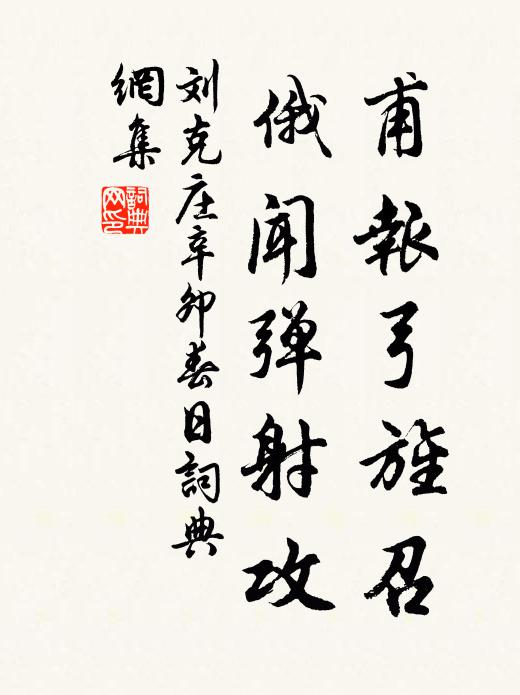 甫報弓旌召
俄聞弹射攻
刘克庄辛卯春日詞典
網集
詞典
网印